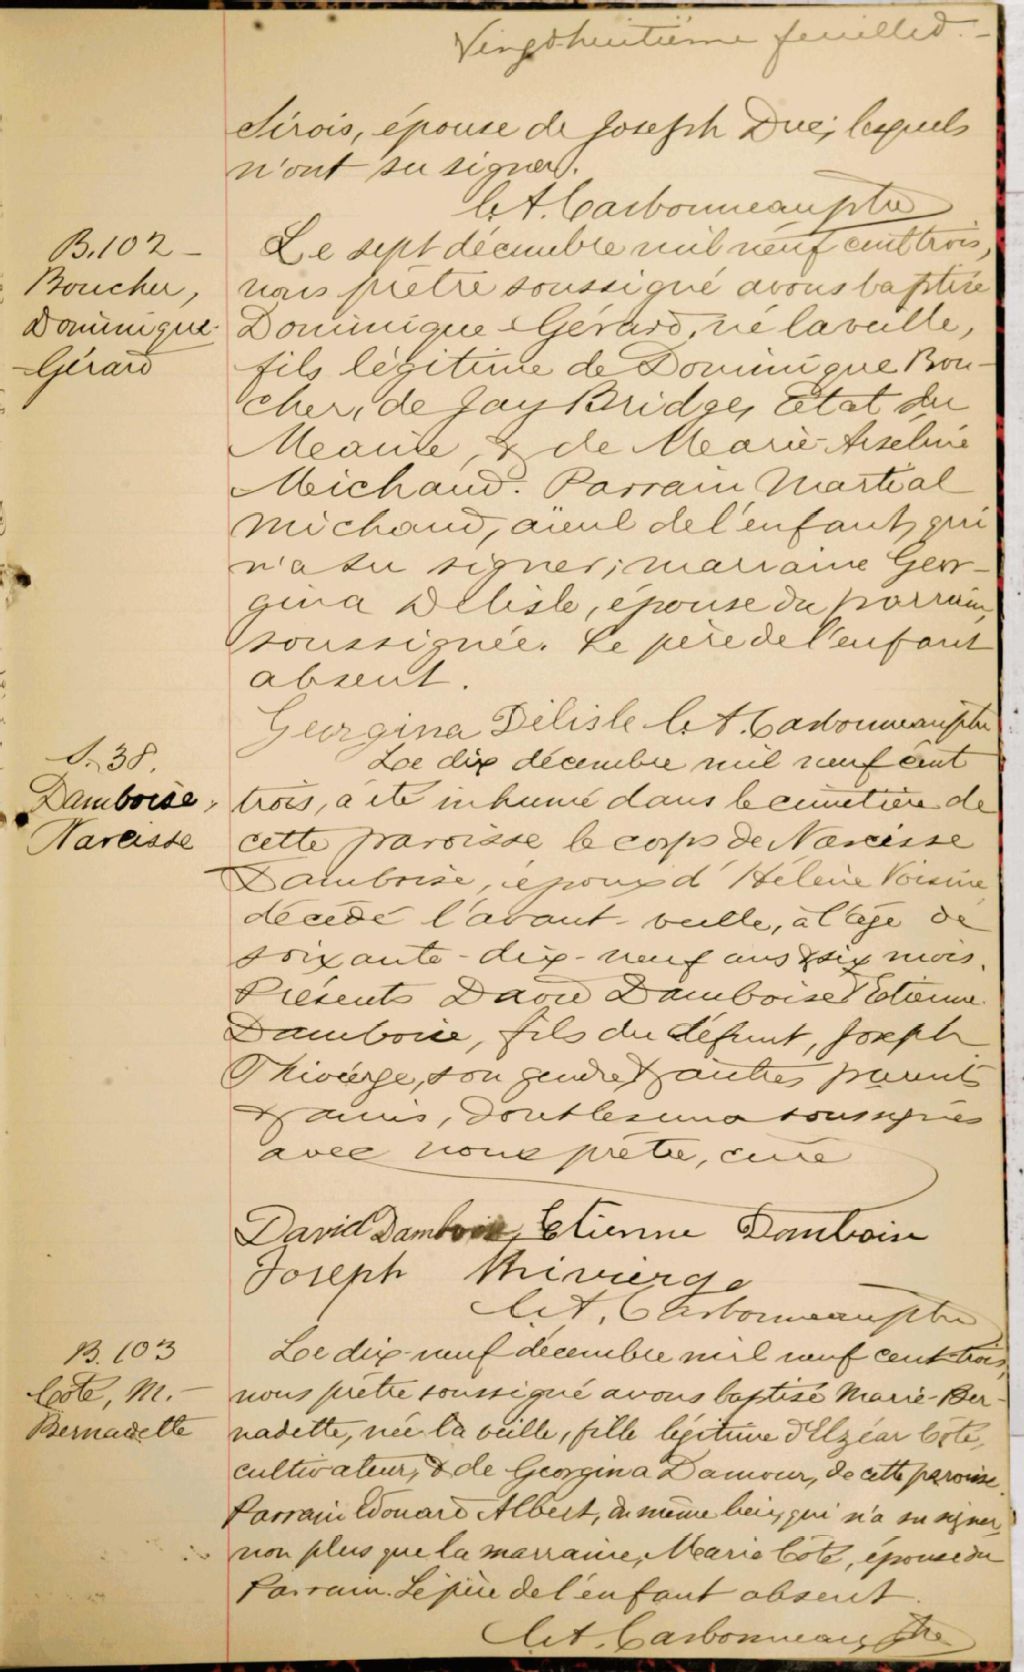 Vingt-huitième feuillet.-
Sirois, épouse de Joseph Duc; lesquels
n'ont su signer.
C. A. Carbonneau ptre
B. 102 -
Boucher,
Dominique-
Gérard
Le sept décembre mil neuf cent trois,
nous prêtre soussigné avons baptisé
Dominique-Gérard, né la veille,
fils légitime de Dominique Bou-
cher, de Jay Bridge, Etat du
Maine, & de Marie-Arséline
Michaud. Parrain Martial
Michaud, aïeul de l'enfant, qui
n'a su signer; marraine Geor-
gina Delisle, épouse du parrain,
soussignée. Le père de l'enfant
absent.
Georgina Délisle C. A. Carbonneau ptre
S. 38.
Damboise,
Narcisse
Le dix décembre mil neuf cent
trois, a été inhumé dans le cimetière de
cette paroisse le corps de Narcisse
Damboise, époux d'Hélène Voisine
décédé l'avant-veille, à l'âge de
soixante-dix-neuf ans & six mois.
Présents David Damboise & Etienne
Damboise, fils du défunt, Joseph
Thivierge, son gendre & autres parents
& amis, dont les uns soussignés
avec nous prêtre, curé
David Damboise, Etienne Damboise
Joseph Thivierge
C. A. Carbonneau ptre
B. 103
Coté, M.-
Bernadette
Le dix-neuf décembre mil neuf cent-trois,
nous prêtre soussigné avons baptisé Marie-Ber-
nadette, née la veille, fille légitime d'Elzéar Coté,
cultivateur, & de Georgina Damour, de cette paroisse.
Parrain Edouard Albert, du même lieu, qui n'a su signer,
non plus que la marraine, Marie Coté, épouse du
Parrain. Le père de l'enfant absent.
C. A. Carbonneau, ptre